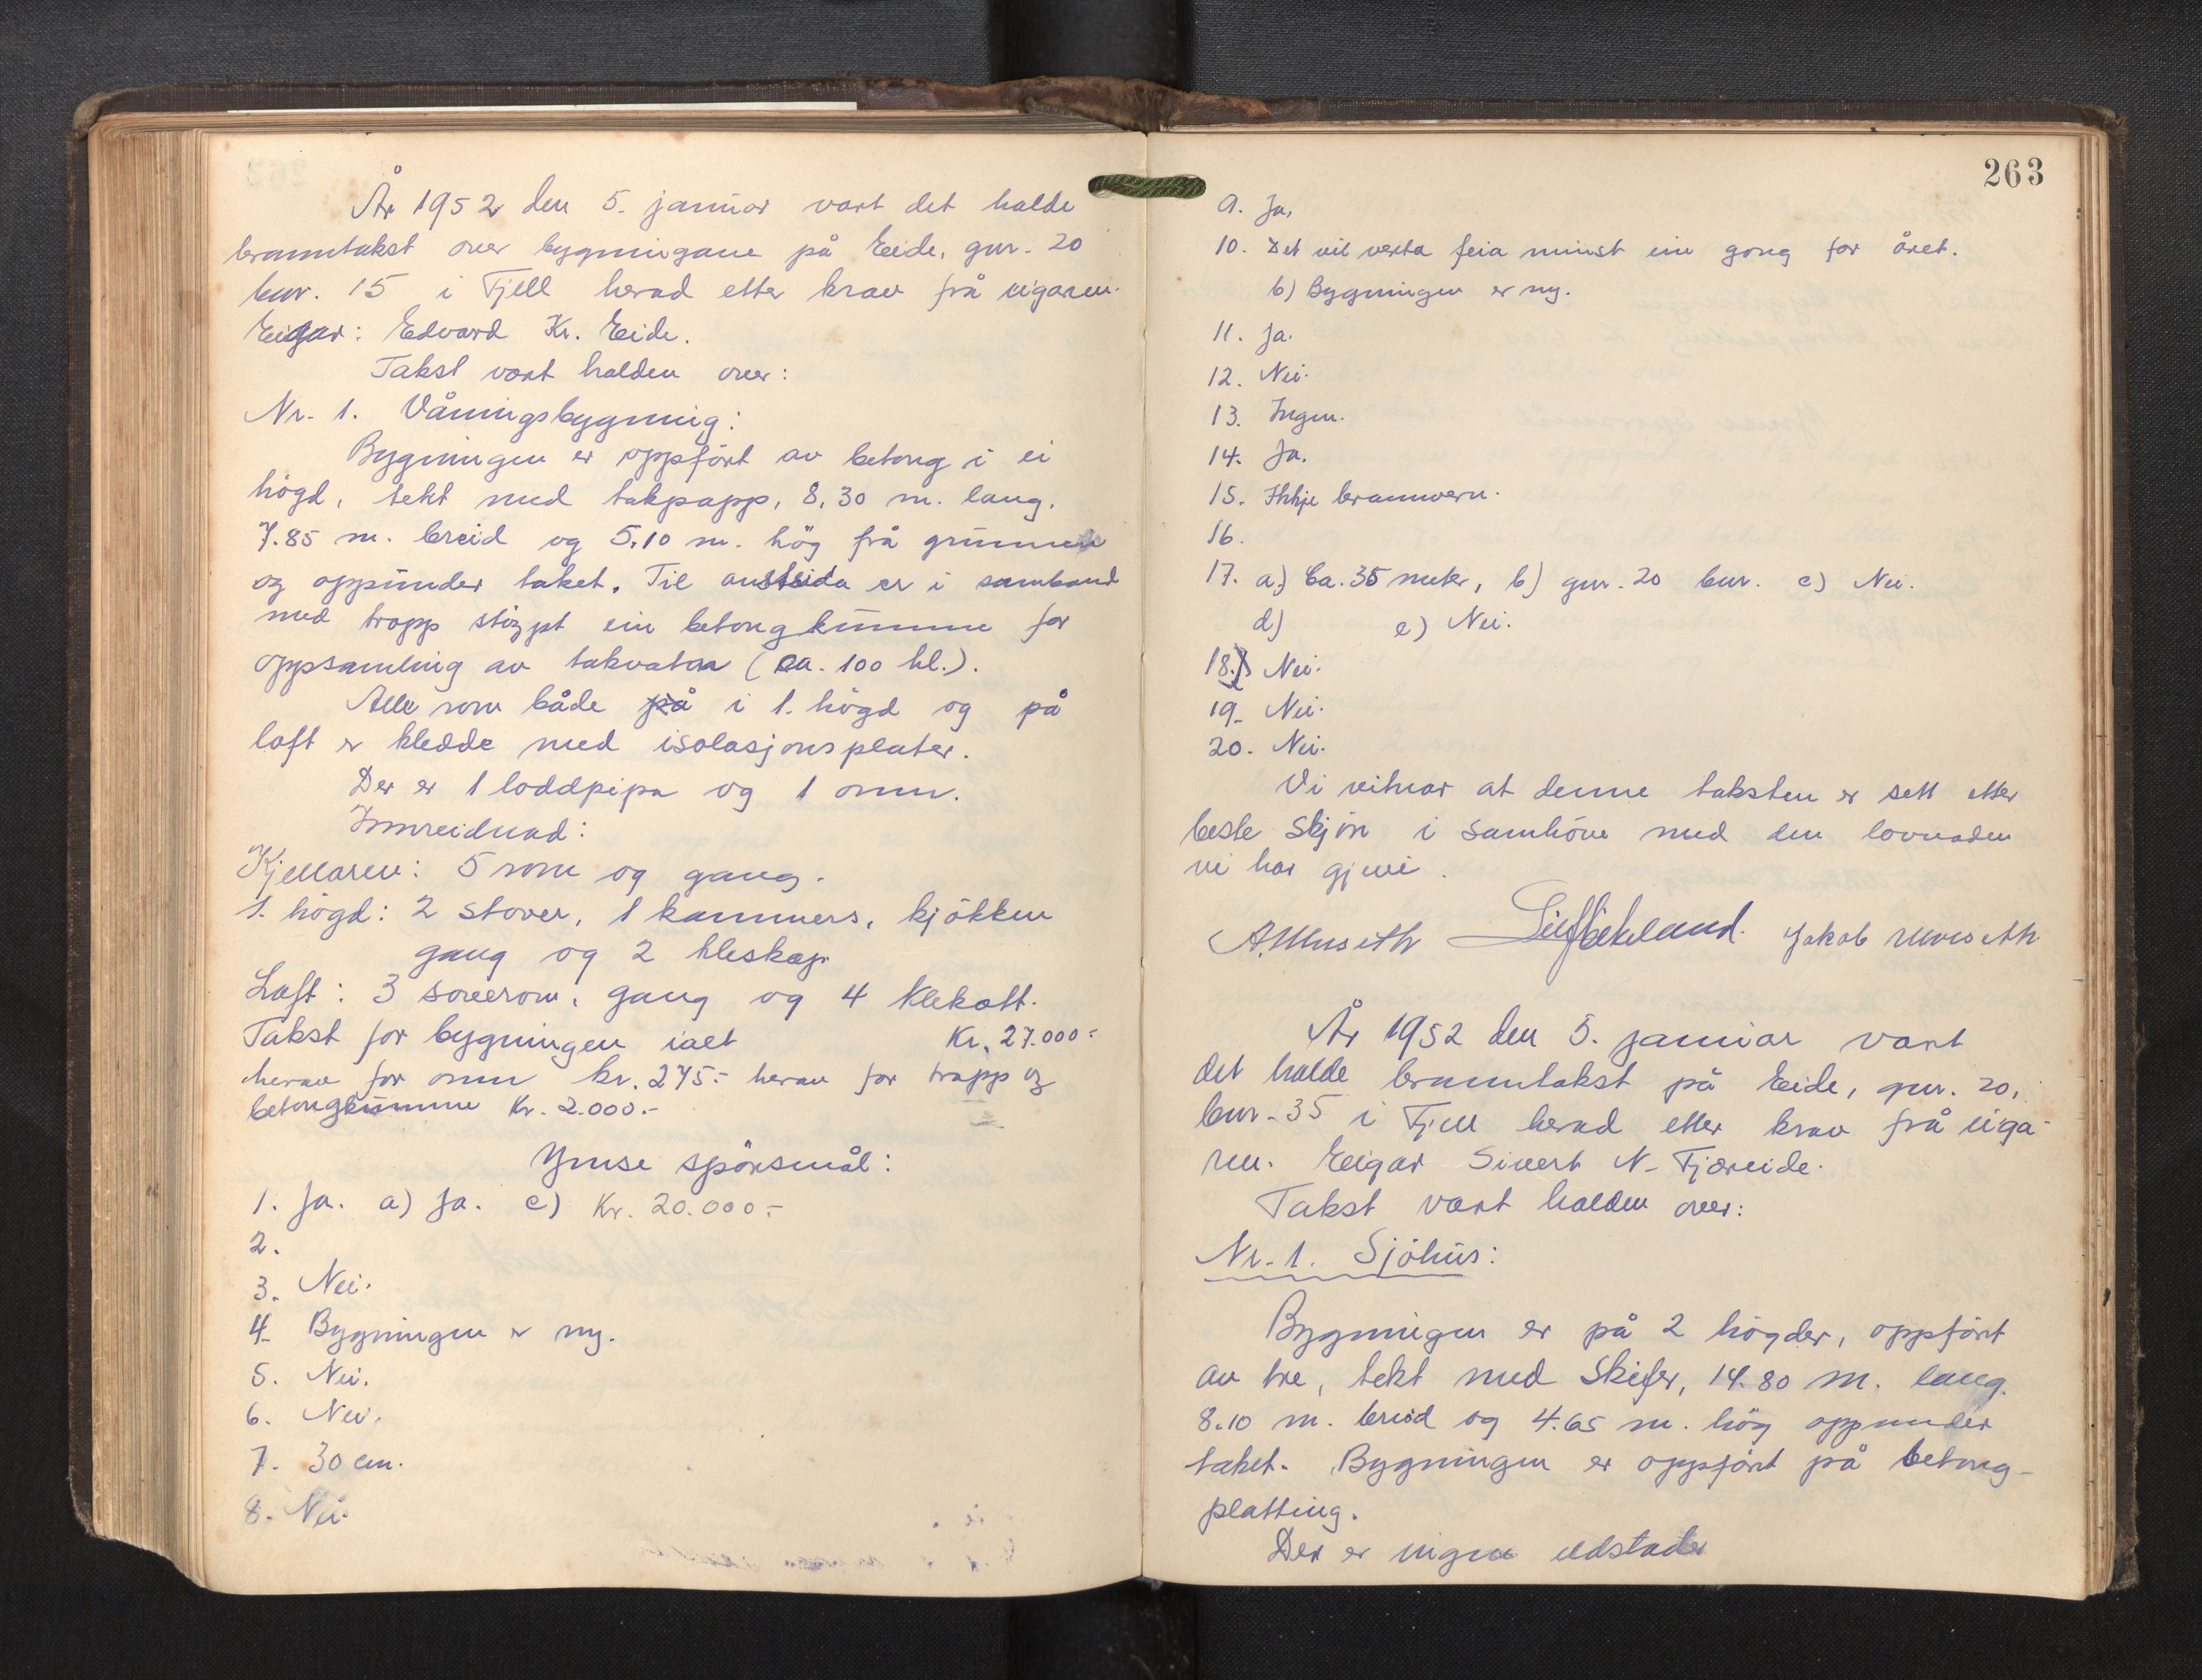 År 1952 den 5. januar vart det halde
branntakst over bygningane på Eide, gnr. 20
bnr. 15 i Fjell herad etter krav frå eigaren.
Eigar: Edvard Kr. Eide.
Takst vart halden over:
Nr. 1. Våningsbygning:
Bygningen er oppført av betong i ei
högd, tekt med takpapp, 8,30 m. lang,
7.85 m. breid og 5,10 m. hög frå grunnen
og oppunder taket. Til austsida er i samband
med tropp støypt ein betongkumme for
oppsamling av takvatn (ca. 100 hl.).
Alle rom både på i 1. högd og på
loft er kledde med isolasjonsplater.
Der er 1 loddpipa og 1 omn.
Innreidnad:
Kjellaren: 5 rom og gang.
1. högd: 2 stover, 1 kammers, kjökken
gang og 2 kleskap
Loft: 3 soverom, gang og 4 klekott.
Takst for bygningen ialt Kr. 27.000:-
herav for omn kr. 275:- herav for trapp og
betongkumme Kr. 2.000.-
Ymse spörsmål:
1. Ja. a) Ja. c) Kr. 20.000:-
2.
3. Nei.
4. Bygningen er ny.
5. Nei.
6. Nei.
7. 30 cm.
8. Nei.
263
9. Ja.
10. Det vil verta feia minst ein gong for året.
b) Bygningen er ny.
11. Ja.
12. Nei.
13. Ingen.
14. Ja.
15. Ikkje brannvern.
16.
17. a) Ca. 35 meter, b) gnr. 20 bnr. c) Nei.
d) e) Nei.
18. Nei.
19. Nei.
20. Nei.
Vi vitnar at denne taksten er sett etter
beste skjön i samhöve med den lovnaden
vi har gjeve.
Jakob
År 1952 den 5. januar vart
det halde branntakst på Eide, gnr. 20,
bnr. 35 i Fjell herad etter krav frå eiga-
ren. Eigar Sivert N. Fjæreide.
Takst vart halden over:
Nr. 1. Sjöhus:
Bygningen er på 2 högder, oppfört
av tre, tekt med skifer, 14.80 m. lang,
8.10 m. breid og 4.65 m. hög oppunder
taket. Bygningen er oppfört på betong-
platting.
Der er ingen eldstader